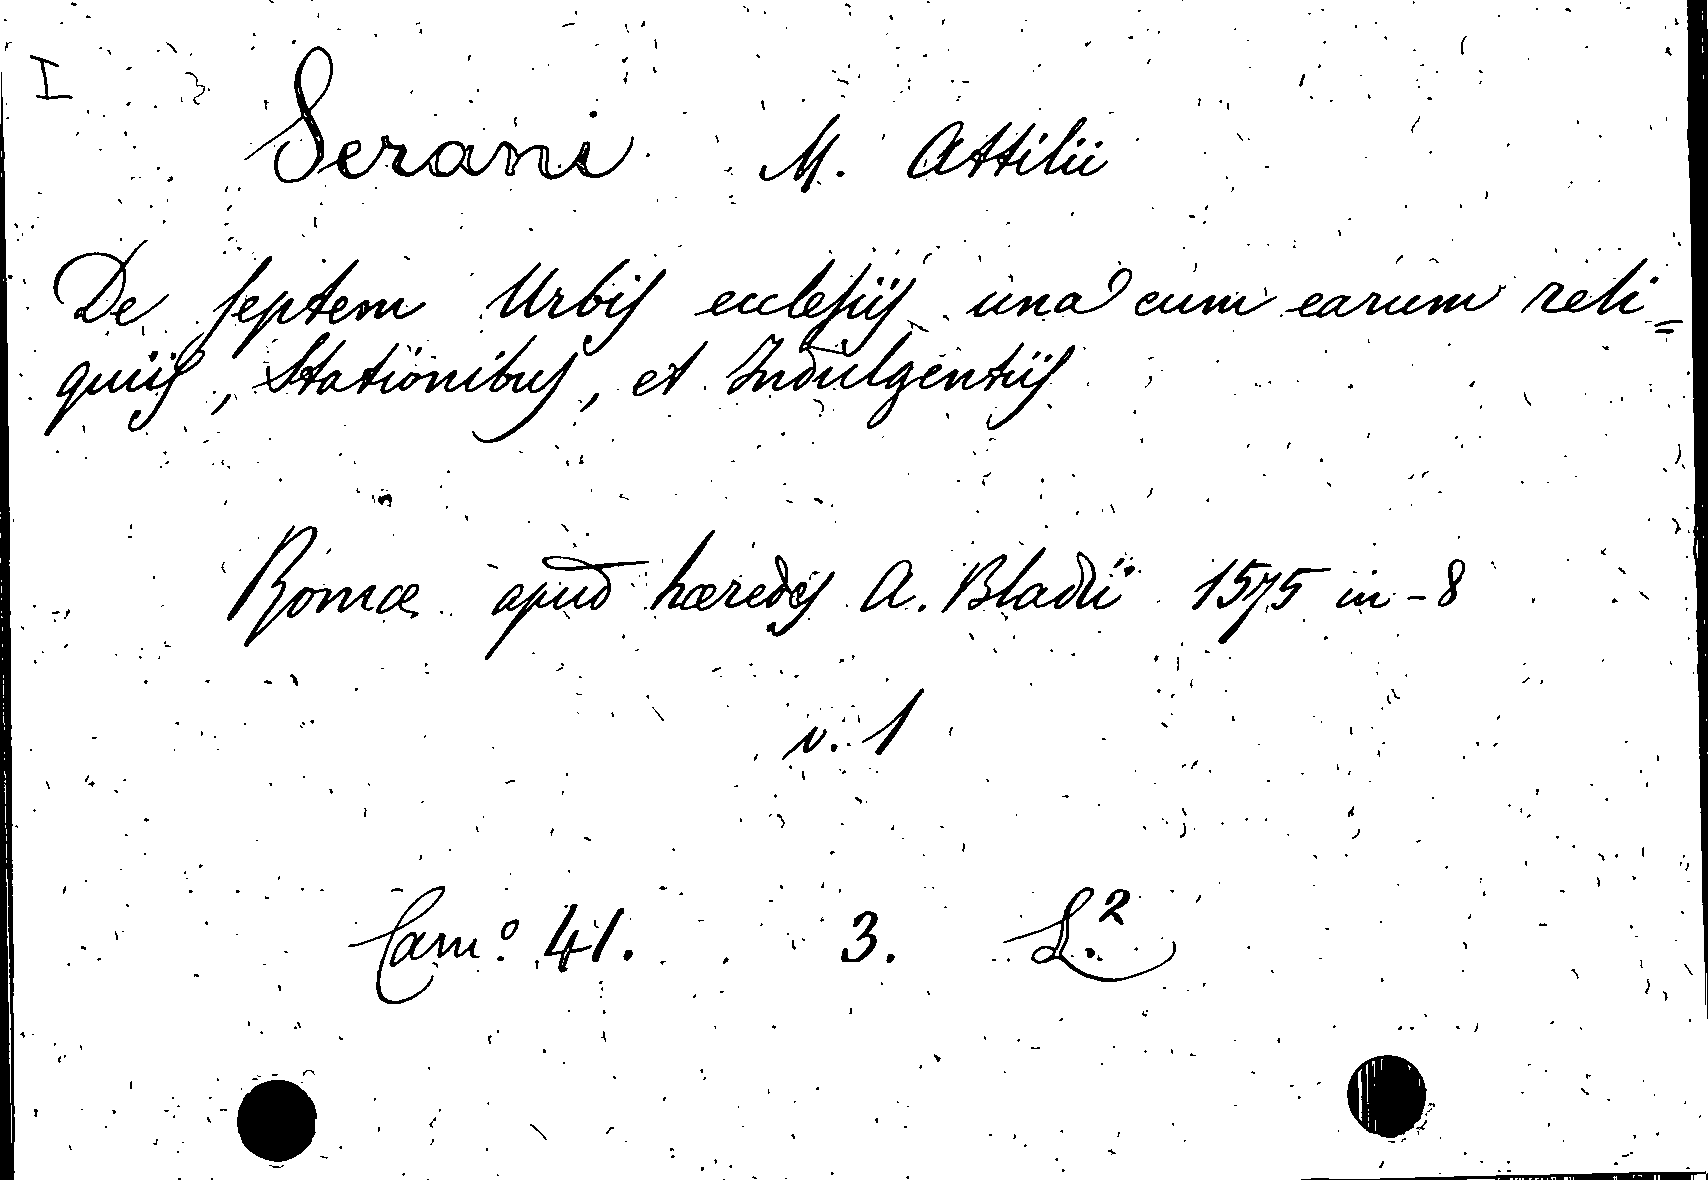 I
Serani M. Attilii
De septem Urbis ecclesiis una cum earum reli=
quiis, Stationibus, et Indulgentiis
Romæ apud hæredes A. Bladii 1575 in-8
v. 1
Cam.º 41. 3. L.²